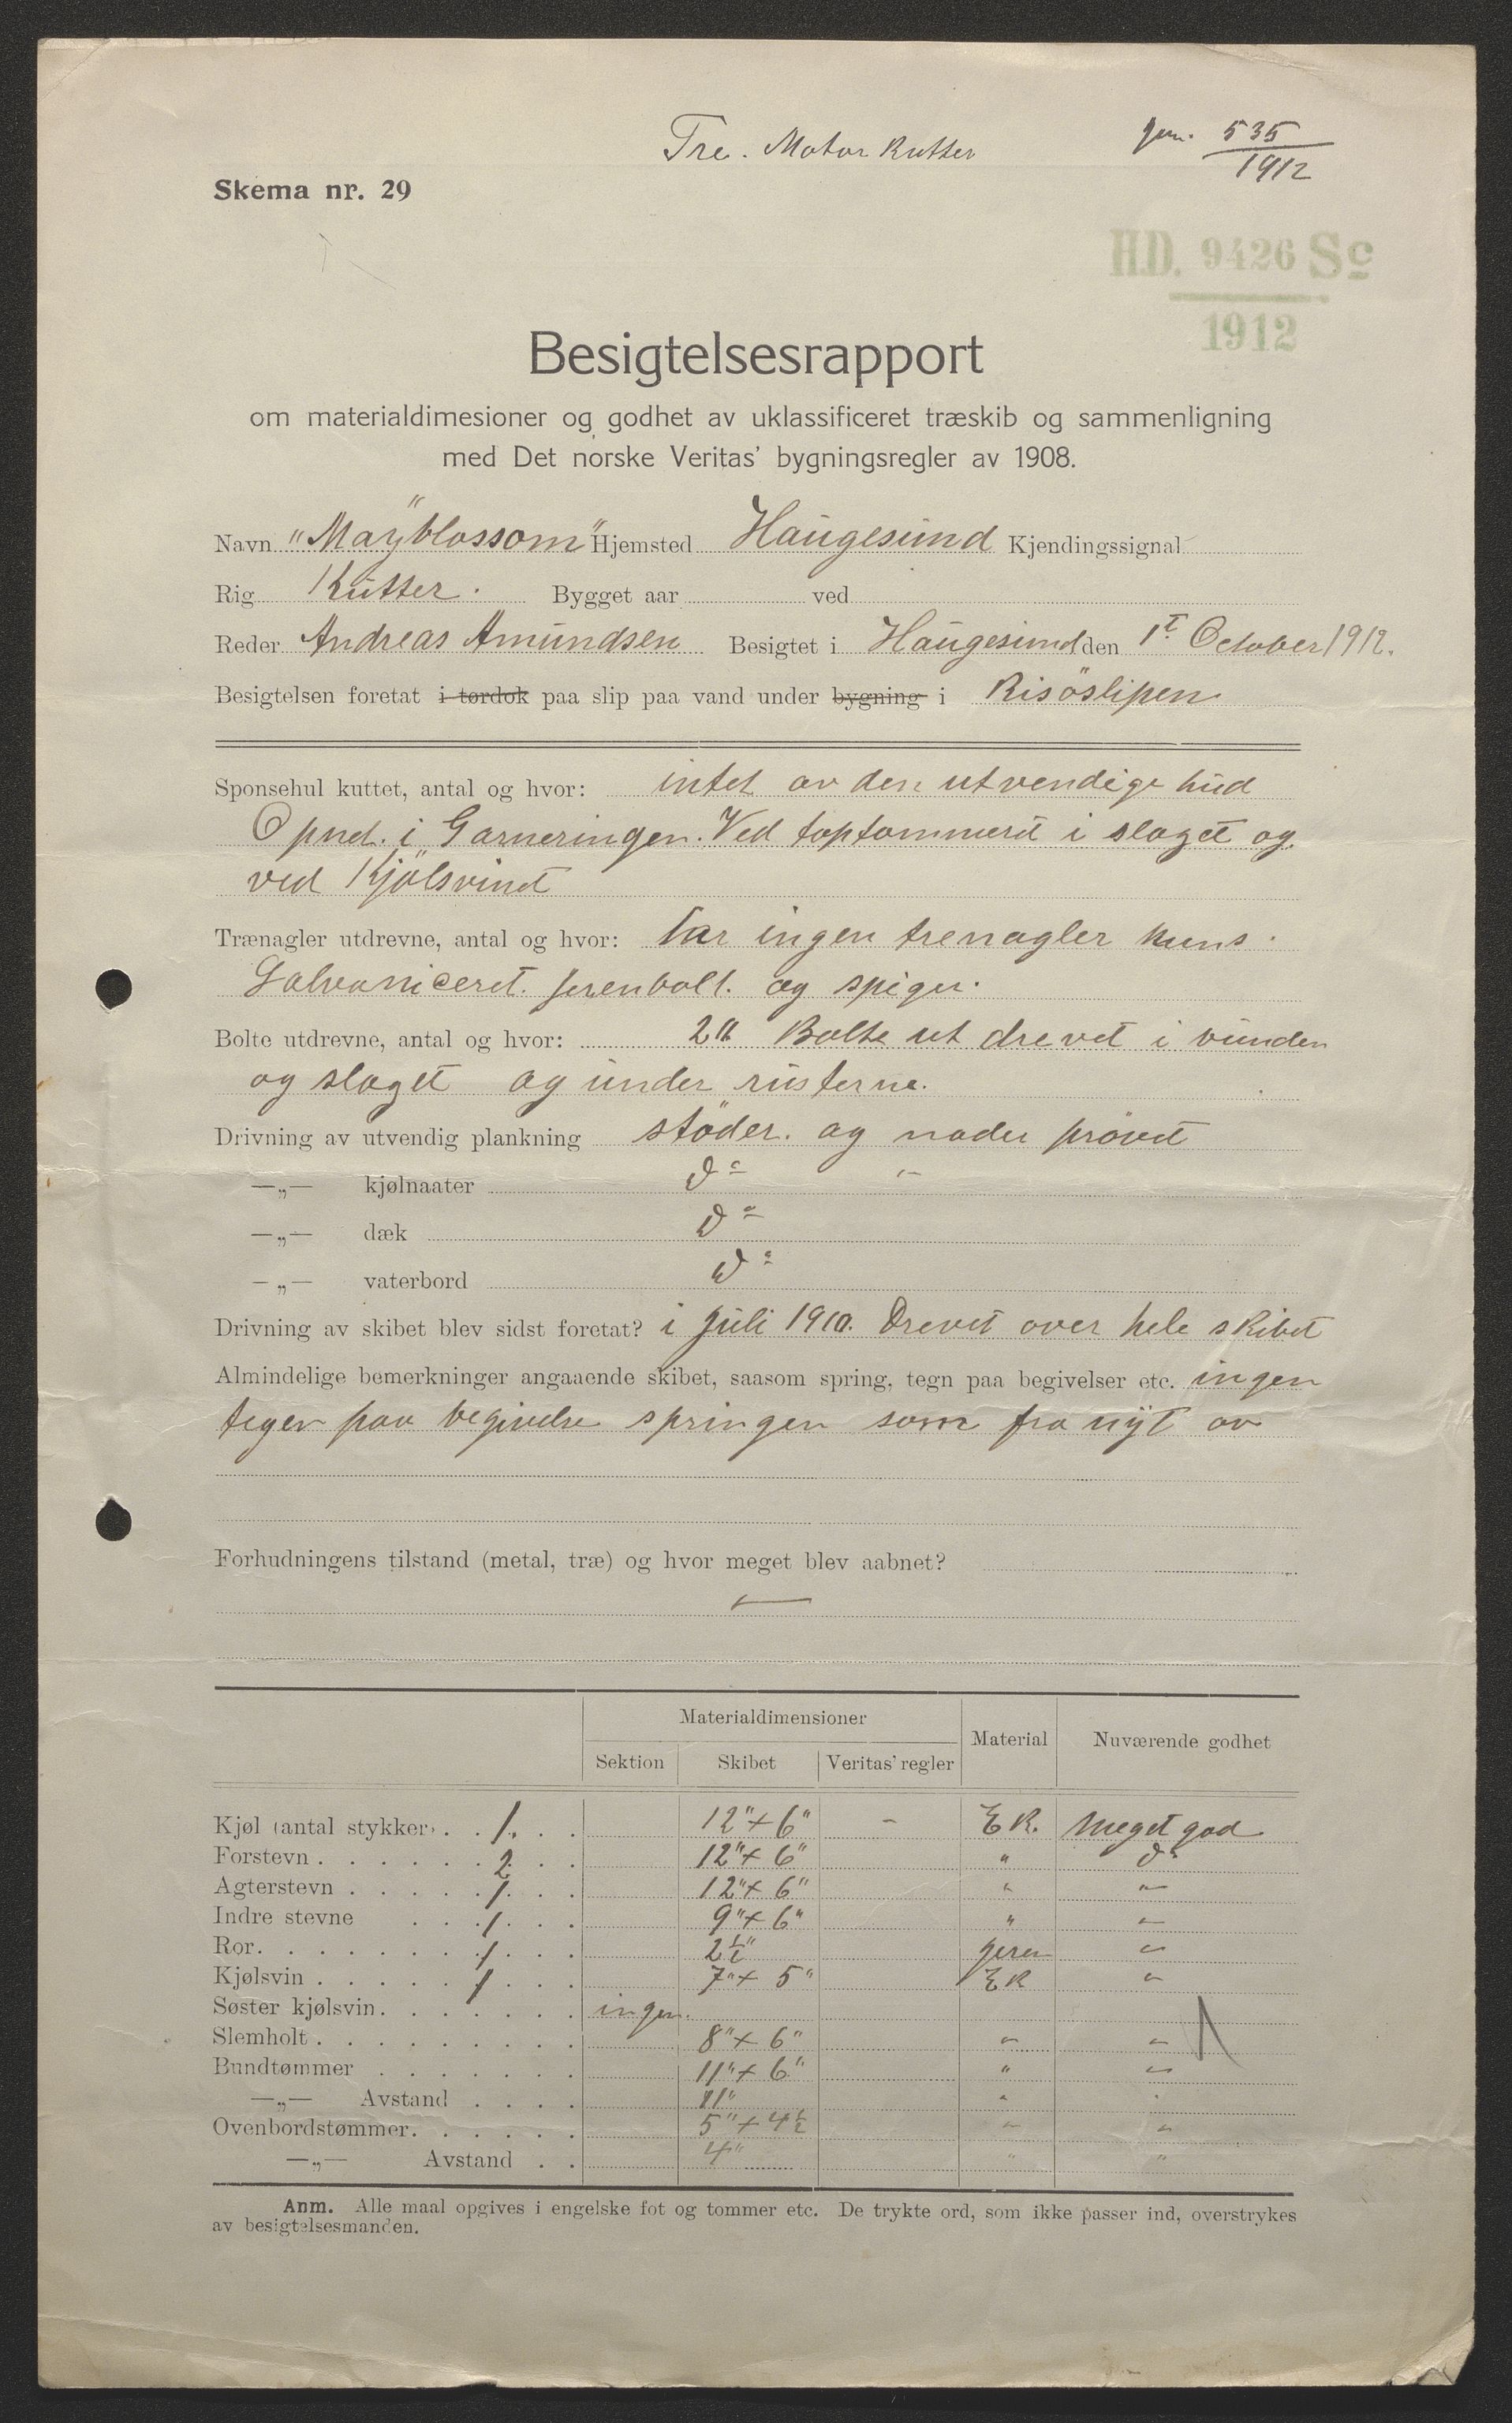 Tre. Motor Kutter
jn. 535
1912
Skema nr. 29
H.D. 9426 Sc
1912
Besigtelsesrapport
om materialdimesioner og godhet av uklassificeret træskib og sammenligning
med Det norske Veritas' bygningsregler av 1908.
Navn "Mayblossom" Hjemsted Haugesund Kjendingssignal
Rig Kutter. Bygget aar ved
Reder Andreas Amundsen Besigtet i Haugesund den 1t October 1912.
Besigtelsen foretat i tørdok paa slip paa vand under bygning i Risöslipen
Sponsehul kuttet, antal og hvor: intet av den utvendige hud
Opned. i Garneringen. Ved toptommerit i slaget og
ved Kjölsvinet
Trænagler utdrevne, antal og hvor: har ingen trenagler kuns
Galvaniceret. jerenbolt. og spiger.
Bolte utdrevne, antal og hvor: Bolte ut drevet i bunden
og slaget og under rusterne.
Drivning av utvendig plankning stöder. og nader prövet
—„— kjølnaater do "
—„— dæk do
—„— vaterbord do
Drivning av skibet blev sidst foretat? i Juli 1910. Drevet over hele skibet
Almindelige bemerkninger angaaende skibet, saasom spring, tegn paa begivelser etc. ingen
tegen paa begivelse springen som fra nyt av
Forhudningens tilstand (metal, træ) og hvor meget blev aabnet?
—
Materialdimensioner
Sektion Skibet Veritas' regler Material Nuværende godhet
Kjøl (antal stykker) . . 1. . . 12"+6" - EK. Meget god
Forstevn . . . . . . 2 . . 12"+6" " do
Agterstevn . . . . . 1 . . . 12"+6" " "
Indre stevne . . . 1 . . . 9"+6" " "
Ror. . . . . . . . 1 . . . 2½" jeren "
Kjølsvin . . . . . 1 . . . 7"+5" EK "
Søster kjølsvin. . . . . . . ingen.
Slemholt . . . . . . . . . 8"+6" " "
Bundtømmer . . . . . . . 11"+6" " "
—„— Avstand . . . . 11" " "
Ovenbordstømmer. . . . . . 5"+4½ " "
—„— Avstand . . 4" " "
Anm. Alle maal opgives i engelske fot og tommer etc. De trykte ord, som ikke passer ind, overstrykes
av besigtelsesmanden.